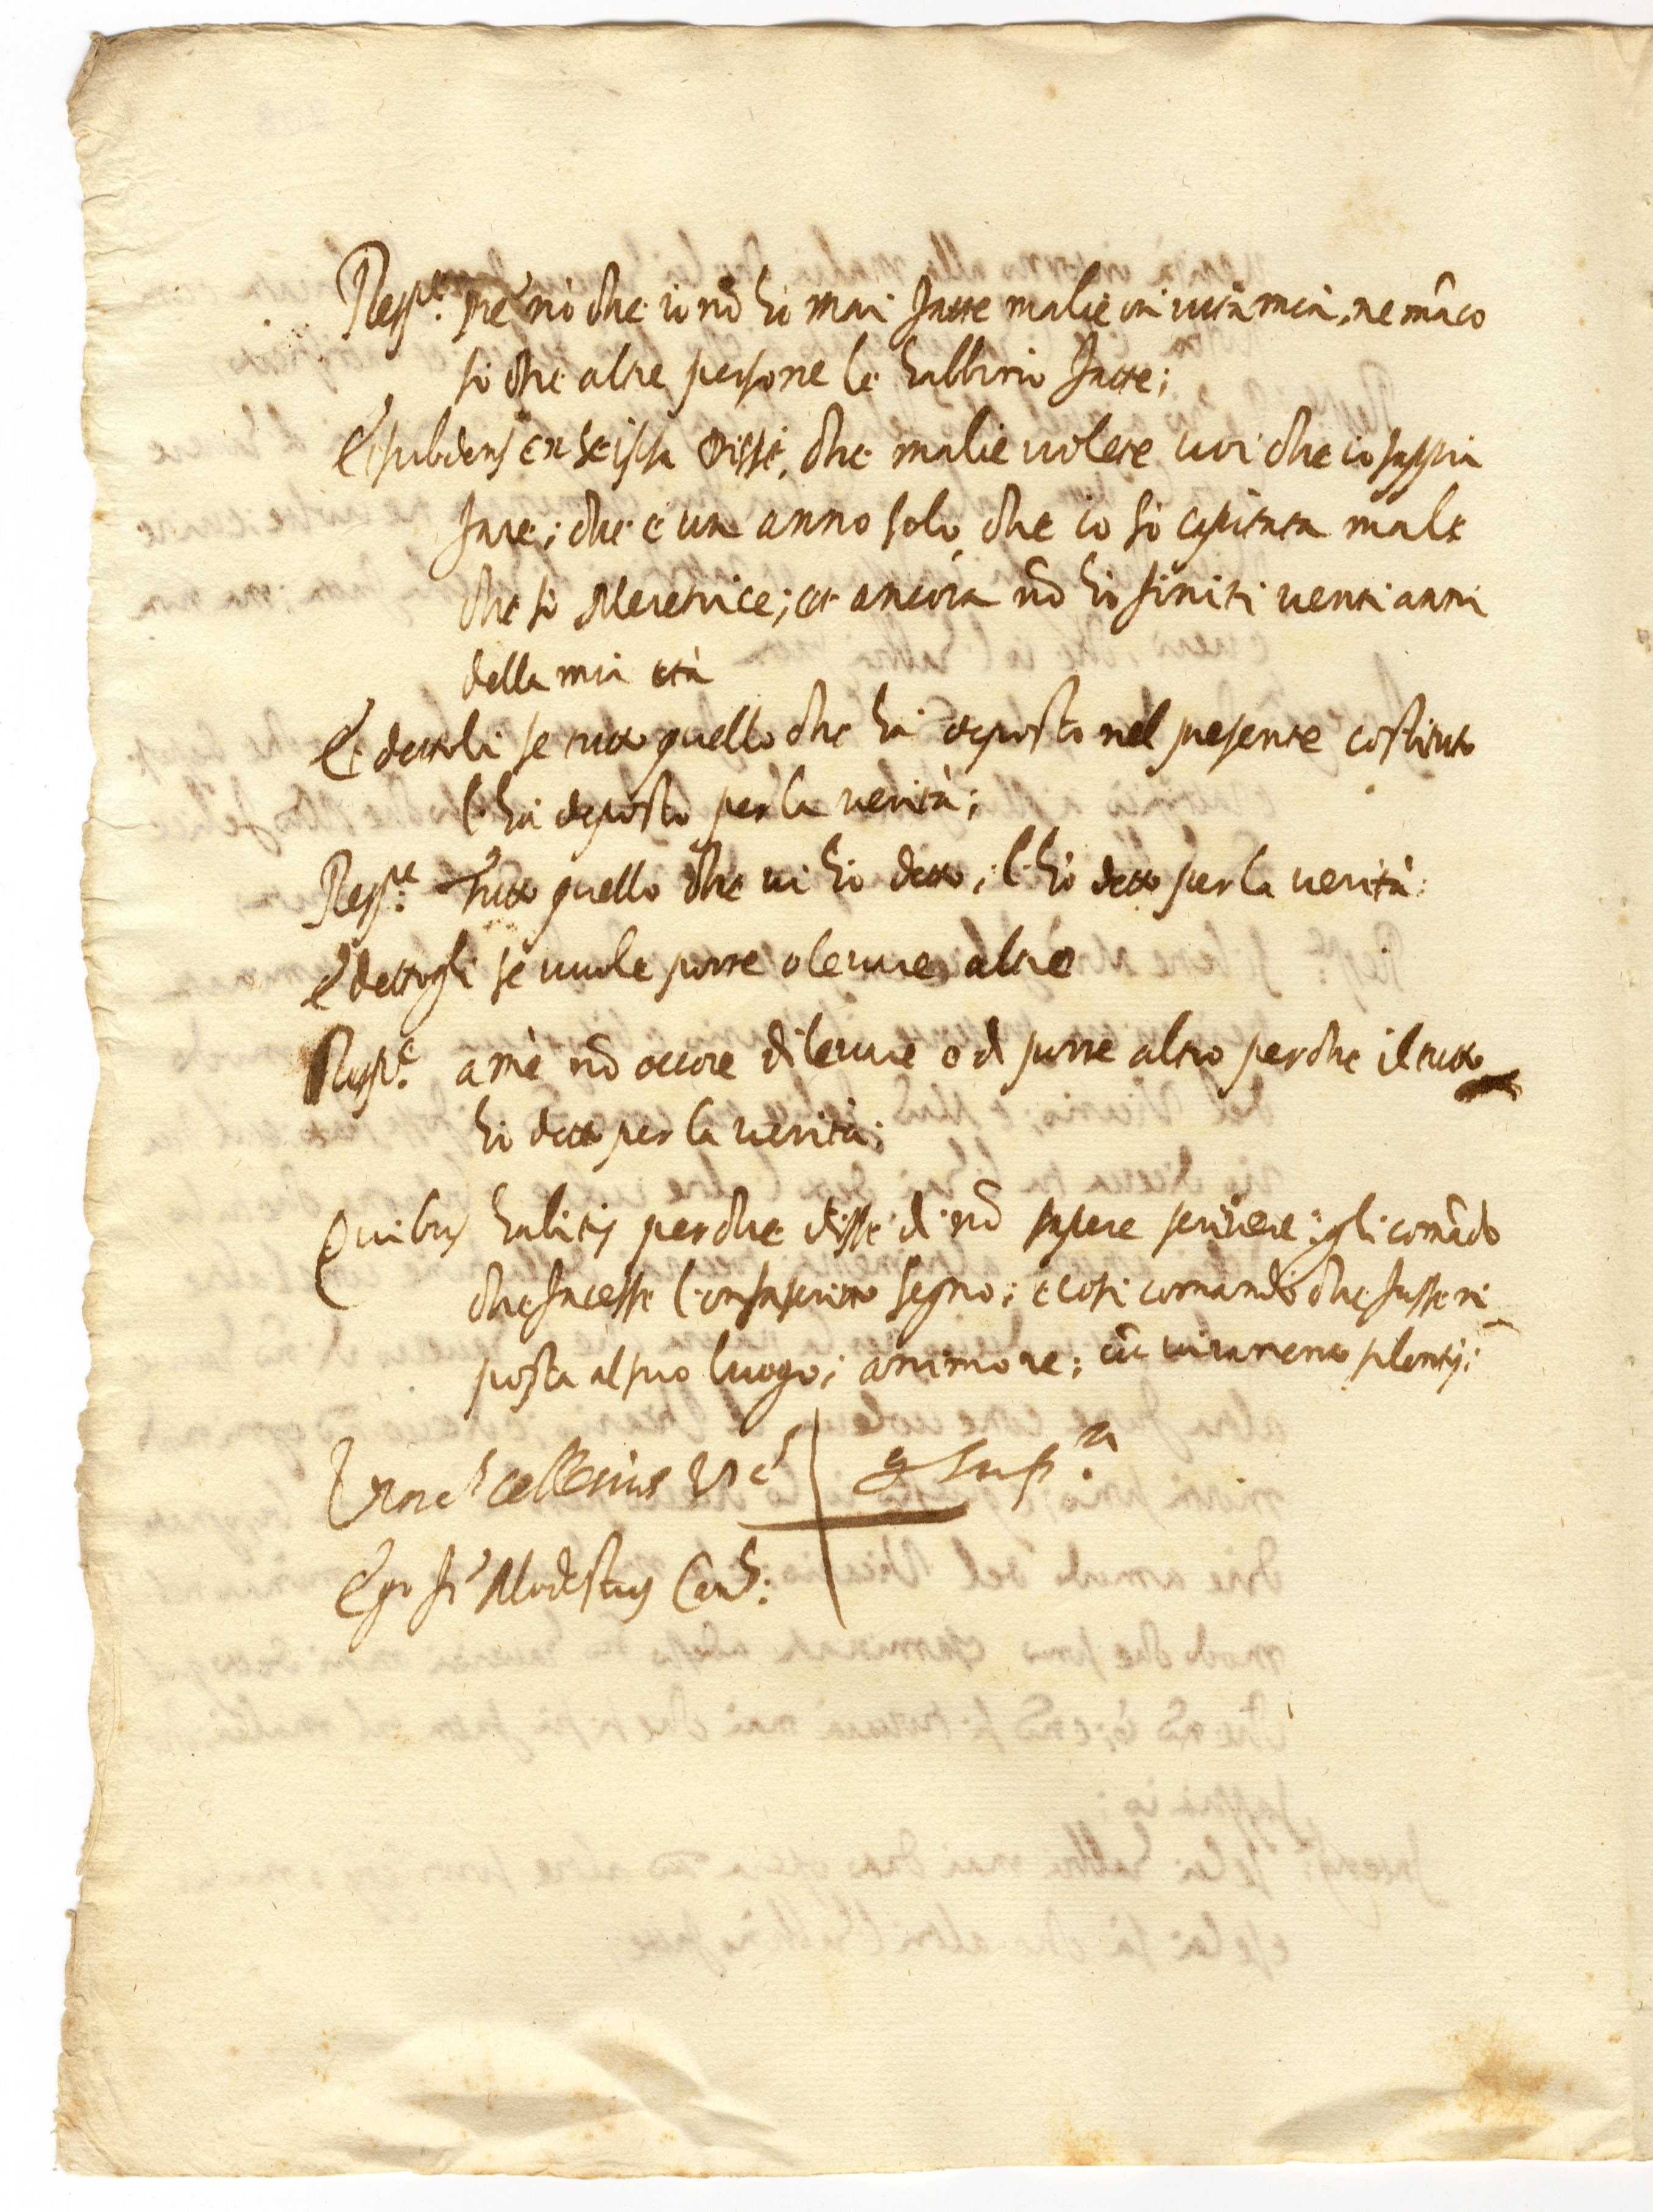 Resp.e sig.re nò che io nõ hò mai fatte malie in vita mia, ne mãco
sò che altre persone le habbino fatte;
Et subdens ex se ipsa Disse, che malie volete voi che io sappia
fare; che è un anno solo che io sò capitata male
che sò Meretrice; et ancora nõ hò finiti venti anni
della mia età
Et dettoli se tutto quello che hà deposto nel presente costituto
l'hà deposto per la verità;
Resp.e Tutto quello che vi hò detto, l'hò detto per la verità:
E dettogli se vuole porre o levare altro
Resp.e a me nõ occore di levare o di porre altro perche il tutto
hò detto per la verità;
Quibus habitis perche disse di nõ sapere scrivere; gli comãdò
che facesse l'infrascritto segno; e così comandò che fusse ri
posta al suo luogo; animo re; cũ iuramento silentij:
cellesius
Ego fr Modestus Canc: